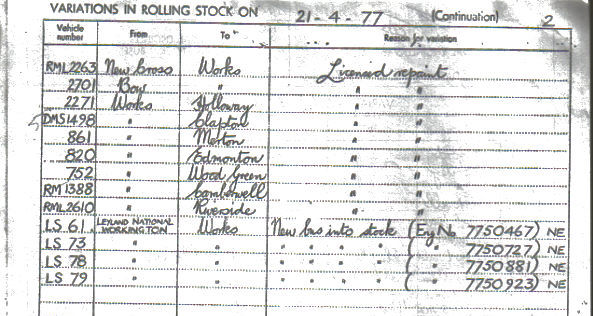 VARIATIONS IN ROLLING STOCK ON 21-4-77 (Continuation) 2
Vehicle number From To Reason for variation
RML2263 New Cross Works Licensed repaint
2701 Bow " " "
2271 Works Holloway " "
DMS1498 " Clapton " "
861 " Merton " "
820 " Edmonton " "
752 " Wood Green " "
RM1388 " Camberwell " "
RML2610 " Riverside " "
LS 61 LEYLAND NATIONAL WORKINGTON Works New bus into stock (Eng No 7750467) NE
LS 73 " " " " " " ( " 7750727) NE
LS 78 " " " " " " ( " 7750881) NE
LS 79 " " " " " " ( " 7750923) NE